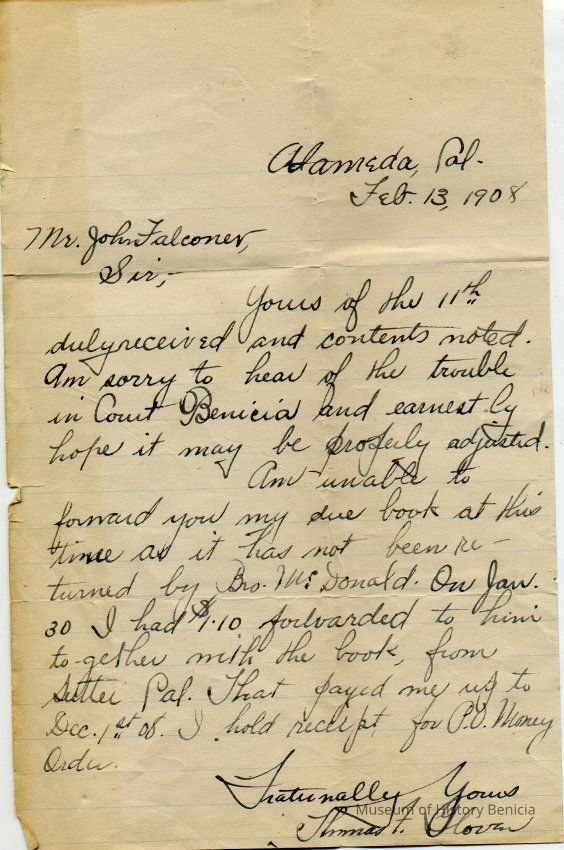 Alameda, Cal.
Feb. 13, 1908
Mr. John Falconer,
Sir,-
Yours of the 11th
duly received and contents noted.
Am sorry to hear of the trouble
in Court Benicia and earnestly
hope it may be properly adjusted.
Am unable to
forward you my due book at this
time as it has not been re-
turned by Bro. McDonald. On Jan.
30 I had $1.10 forwarded to him
to-gether with the book, from
Sutter Cal. That payed me up to
Dec. 1st 08. I hold receipt for P.O. Money
Order.
Fraternally Yours
Thomas F.
Museum of History Benicia